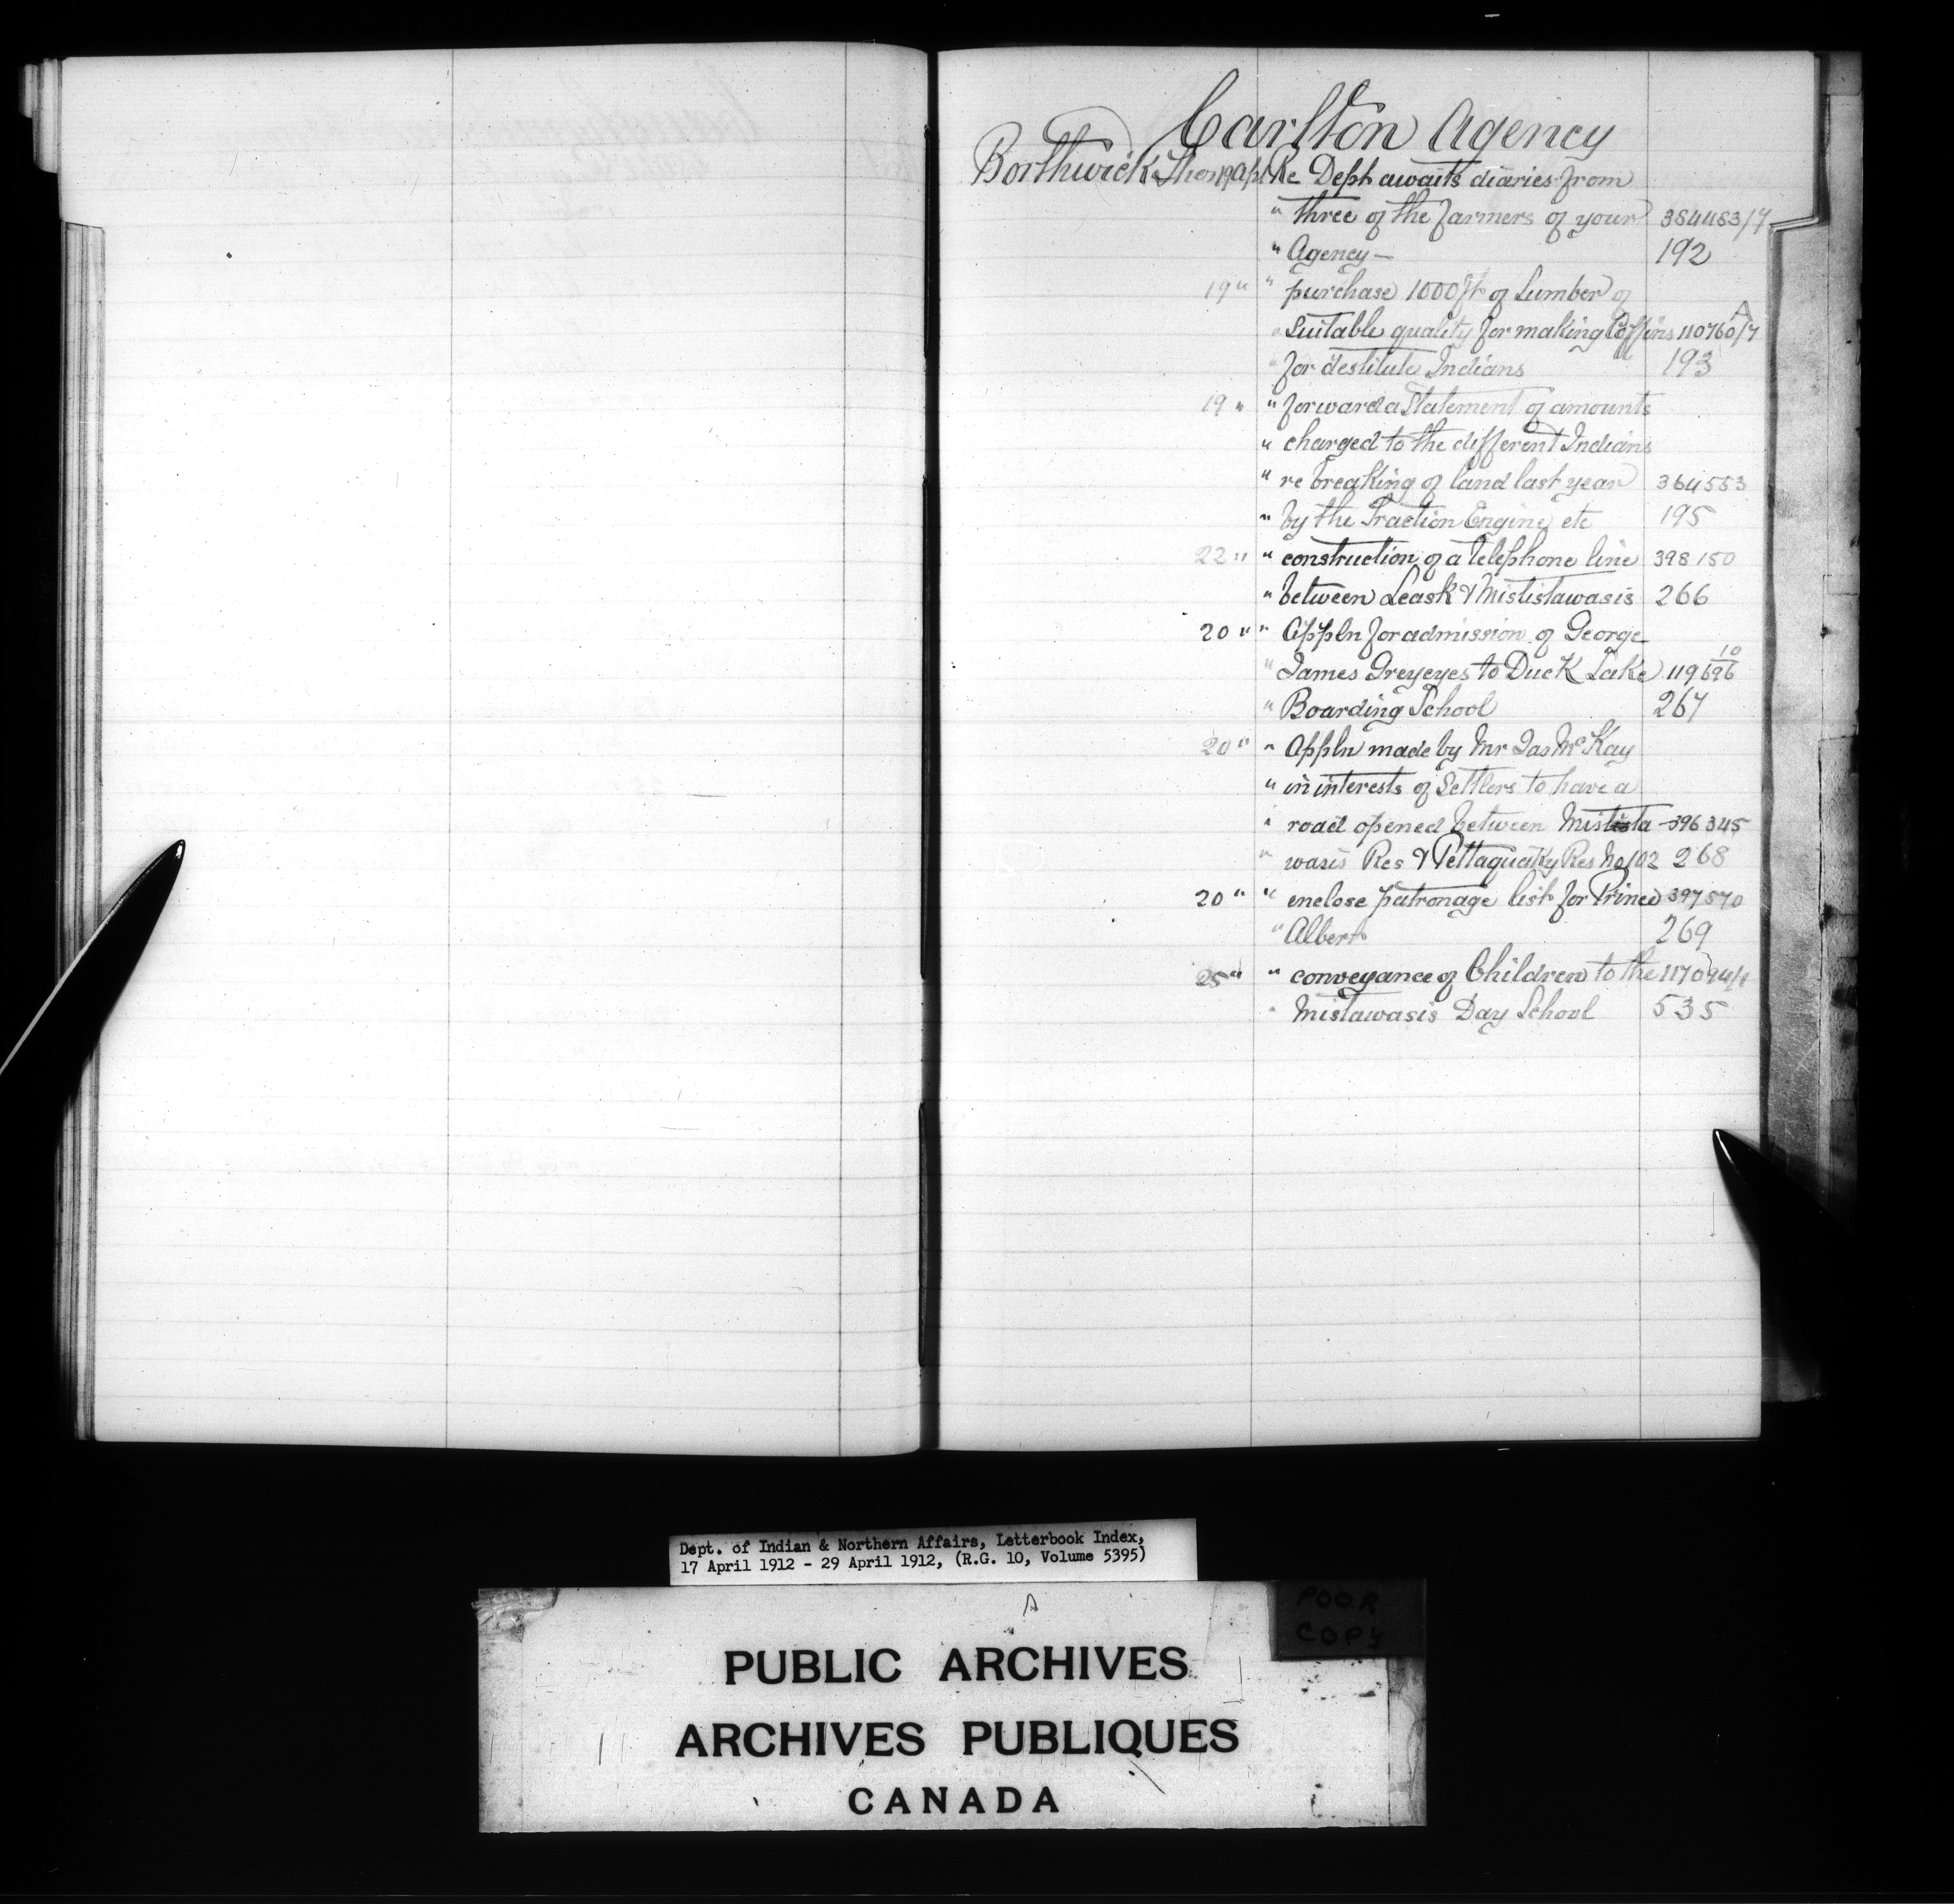 Carlton Agency
Borthwick Thos 19 Apl Re Dept awaits diaries from
" three of the farmers of your 384483/7
" Agency — 192
19 " " purchase 1000 ft of Lumber of
" Suitable quality for making Coffins 110760/7 A
" for destitute Indians 193
19 " " forward a Statement of amounts
" charged to the different Indians
" re breaking of land last year 364553
" by the Traction Engine etc 195
22 " " construction of a telephone line 398150
" between Leask & Mististawasis 266
20 " " Appln for admission of George
" James Greyeyes to Duck Lake 119696 10
" Boarding School 267
20 " " Appln made by Mr Jas McKay
" in interests of Settlers to have a
" road opened between Mistista 396345
" wasis Res & Pettaquaky Res No 102 268
20 " " enclose patronage list for Prince 397570
" Albert 269
25 " " conveyance of Children to the 117094/1
" Mistawasis Day School 535
Dept. of Indian & Northern Affairs, Letterbook Index,
17 April 1912 - 29 April 1912, (R.G. 10, Volume 5395)
A
POOR
COPY
PUBLIC ARCHIVES
ARCHIVES PUBLIQUES
CANADA